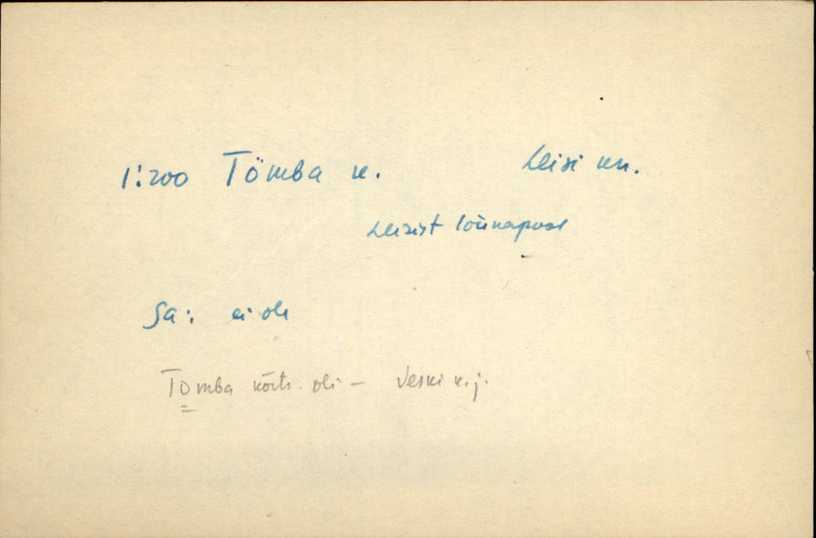 1:200 Tömba k. Leisi kn.
Leisist lõunapool
Sa: ei ole
Tomba kõrts oli – Veski k. j.